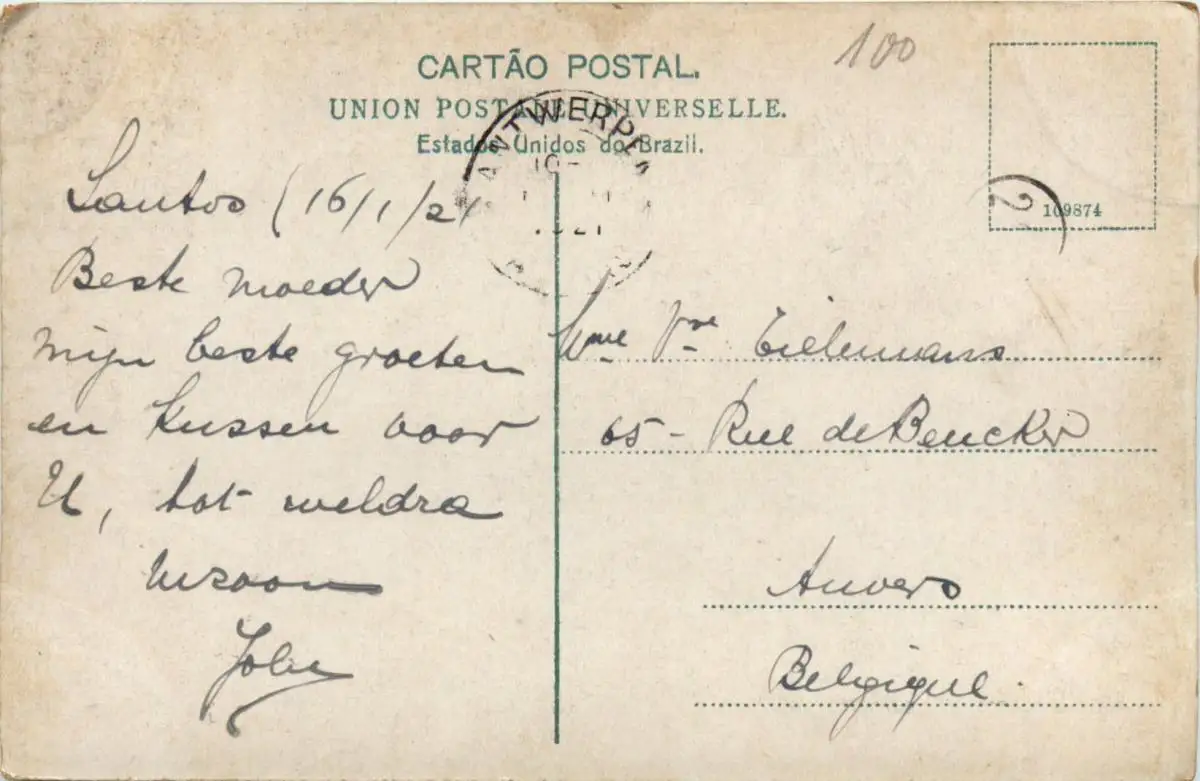 100
CARTÃO POSTAL.
UNION POSTALE UNIVERSELLE.
Estados Unidos do Brazil.
ANTWERPEN
1921
2
109874
Santos (16/1/21
Beste moeder
mijn beste groeten
en kussen voor
U, tot weldra
Uw zoon
John
Mme Vve Tielemans
65 - Rue de Beucker
Anvers
Belgique.